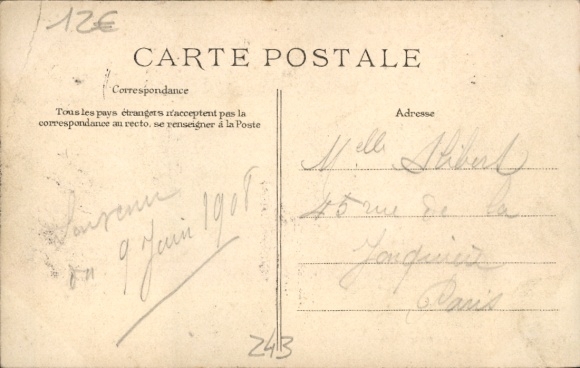 12€
CARTE POSTALE
Correspondance
Tous les pays étrangers n'acceptent pas la
correspondance au recto, se renseigner à la Poste
Adresse
Souvenir
du 9 Juin 1908
Melle Alibert
45 rue de la
Jonquière
Paris
243